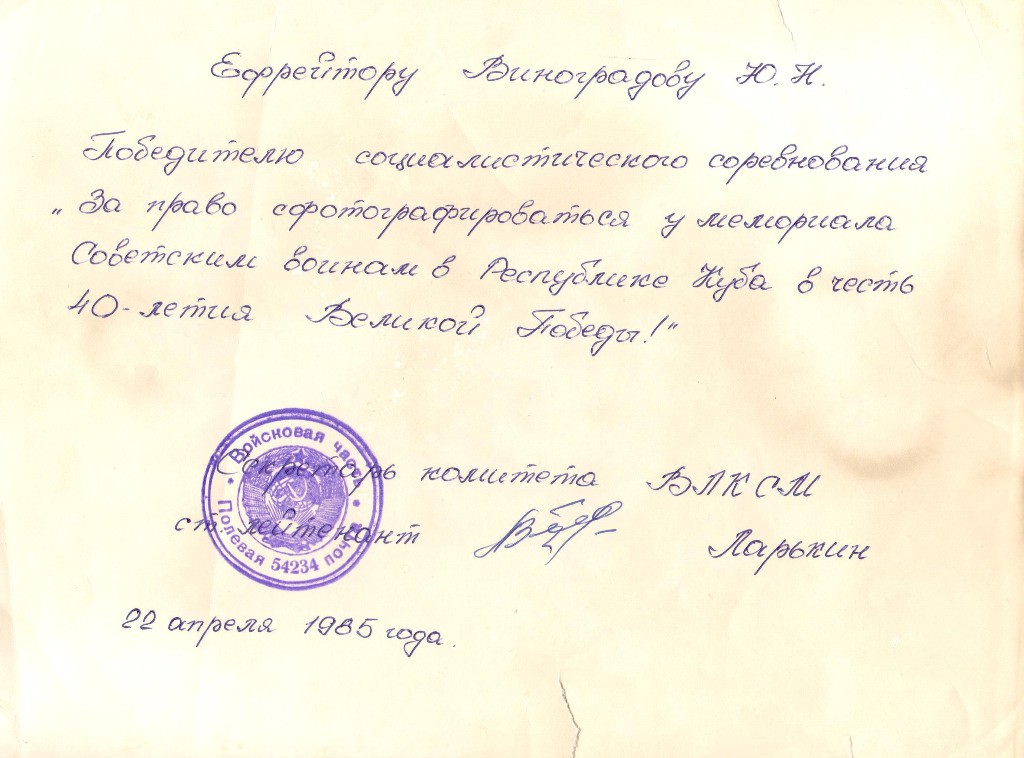 Ефрейтору Виноградову Ю.Н.
Победителю социалистического соревнования
„За право сфотографироваться у мемориала
Советским воинам в Республике Куба в честь
40-летия Великой Победы!"
Секретарь комитета ВЛКСМ
ст. лейтенант Ларькин
Войсковая часть
Полевая почта
54234
22 апреля 1985 года.